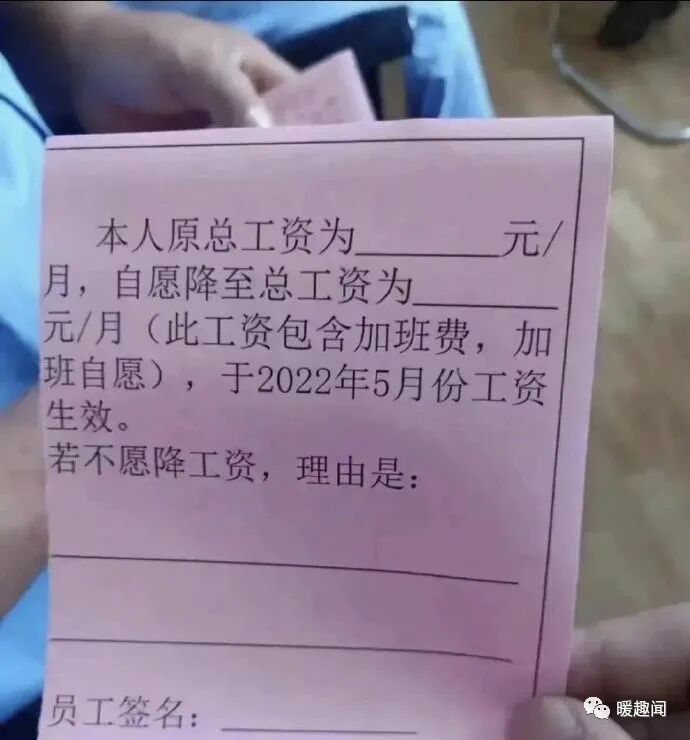 本人原总工资为______元/
月，自愿降至总工资为______
元/月（此工资包含加班费，加
班自愿），于2022年5月份工资
生效。
若不愿降工资，理由是：
员工签名：______
暖趣闻